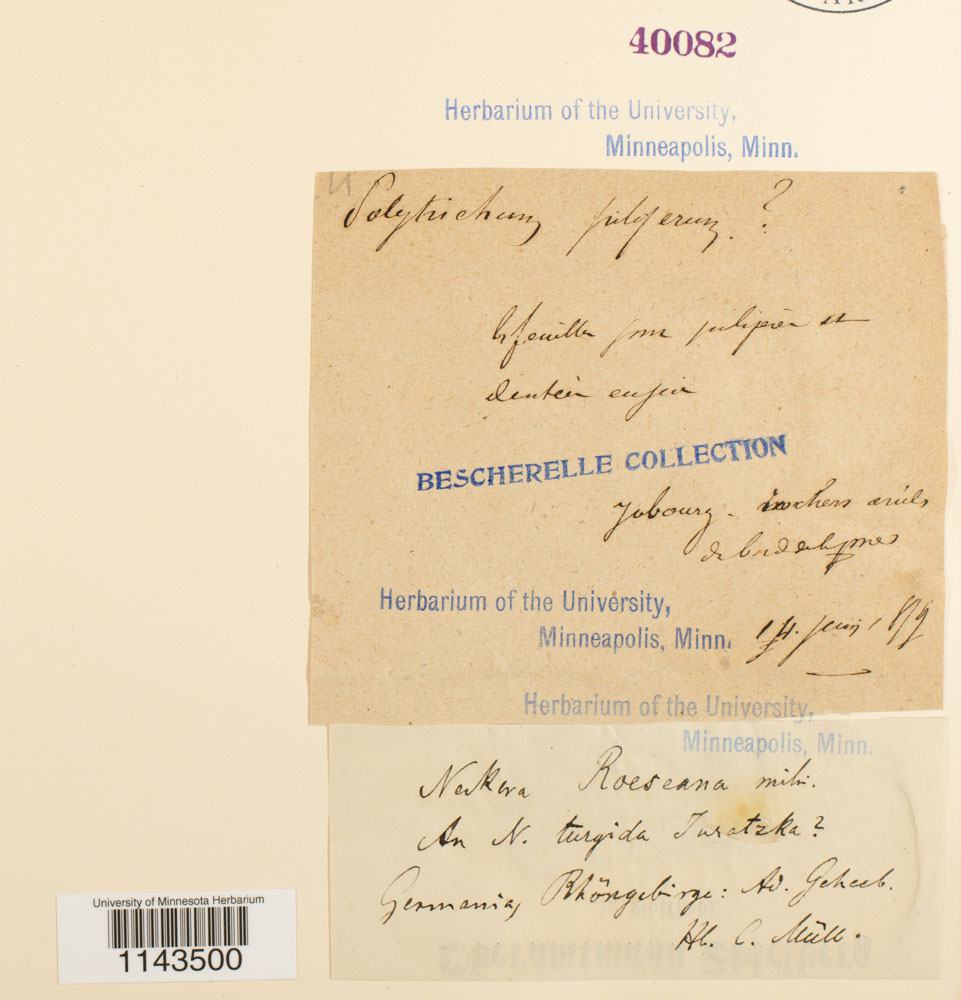 40082
Herbarium of the University,
Minneapolis, Minn.
Polytrichum piliferum. ?
les feuilles sont pilifères et
dentées
BESCHERELLE COLLECTION
Jobourg - rochers
14. juin 1879
Herbarium of the University,
Minneapolis, Minn.
Herbarium of the University,
Minneapolis, Minn.
Neckera Roeseana mihi.
An N. turgida Juratzka?
Germania, Rhöngebirge: Ad. Geheeb.
Hb. C. Müll.
University of Minnesota Herbarium
1143500